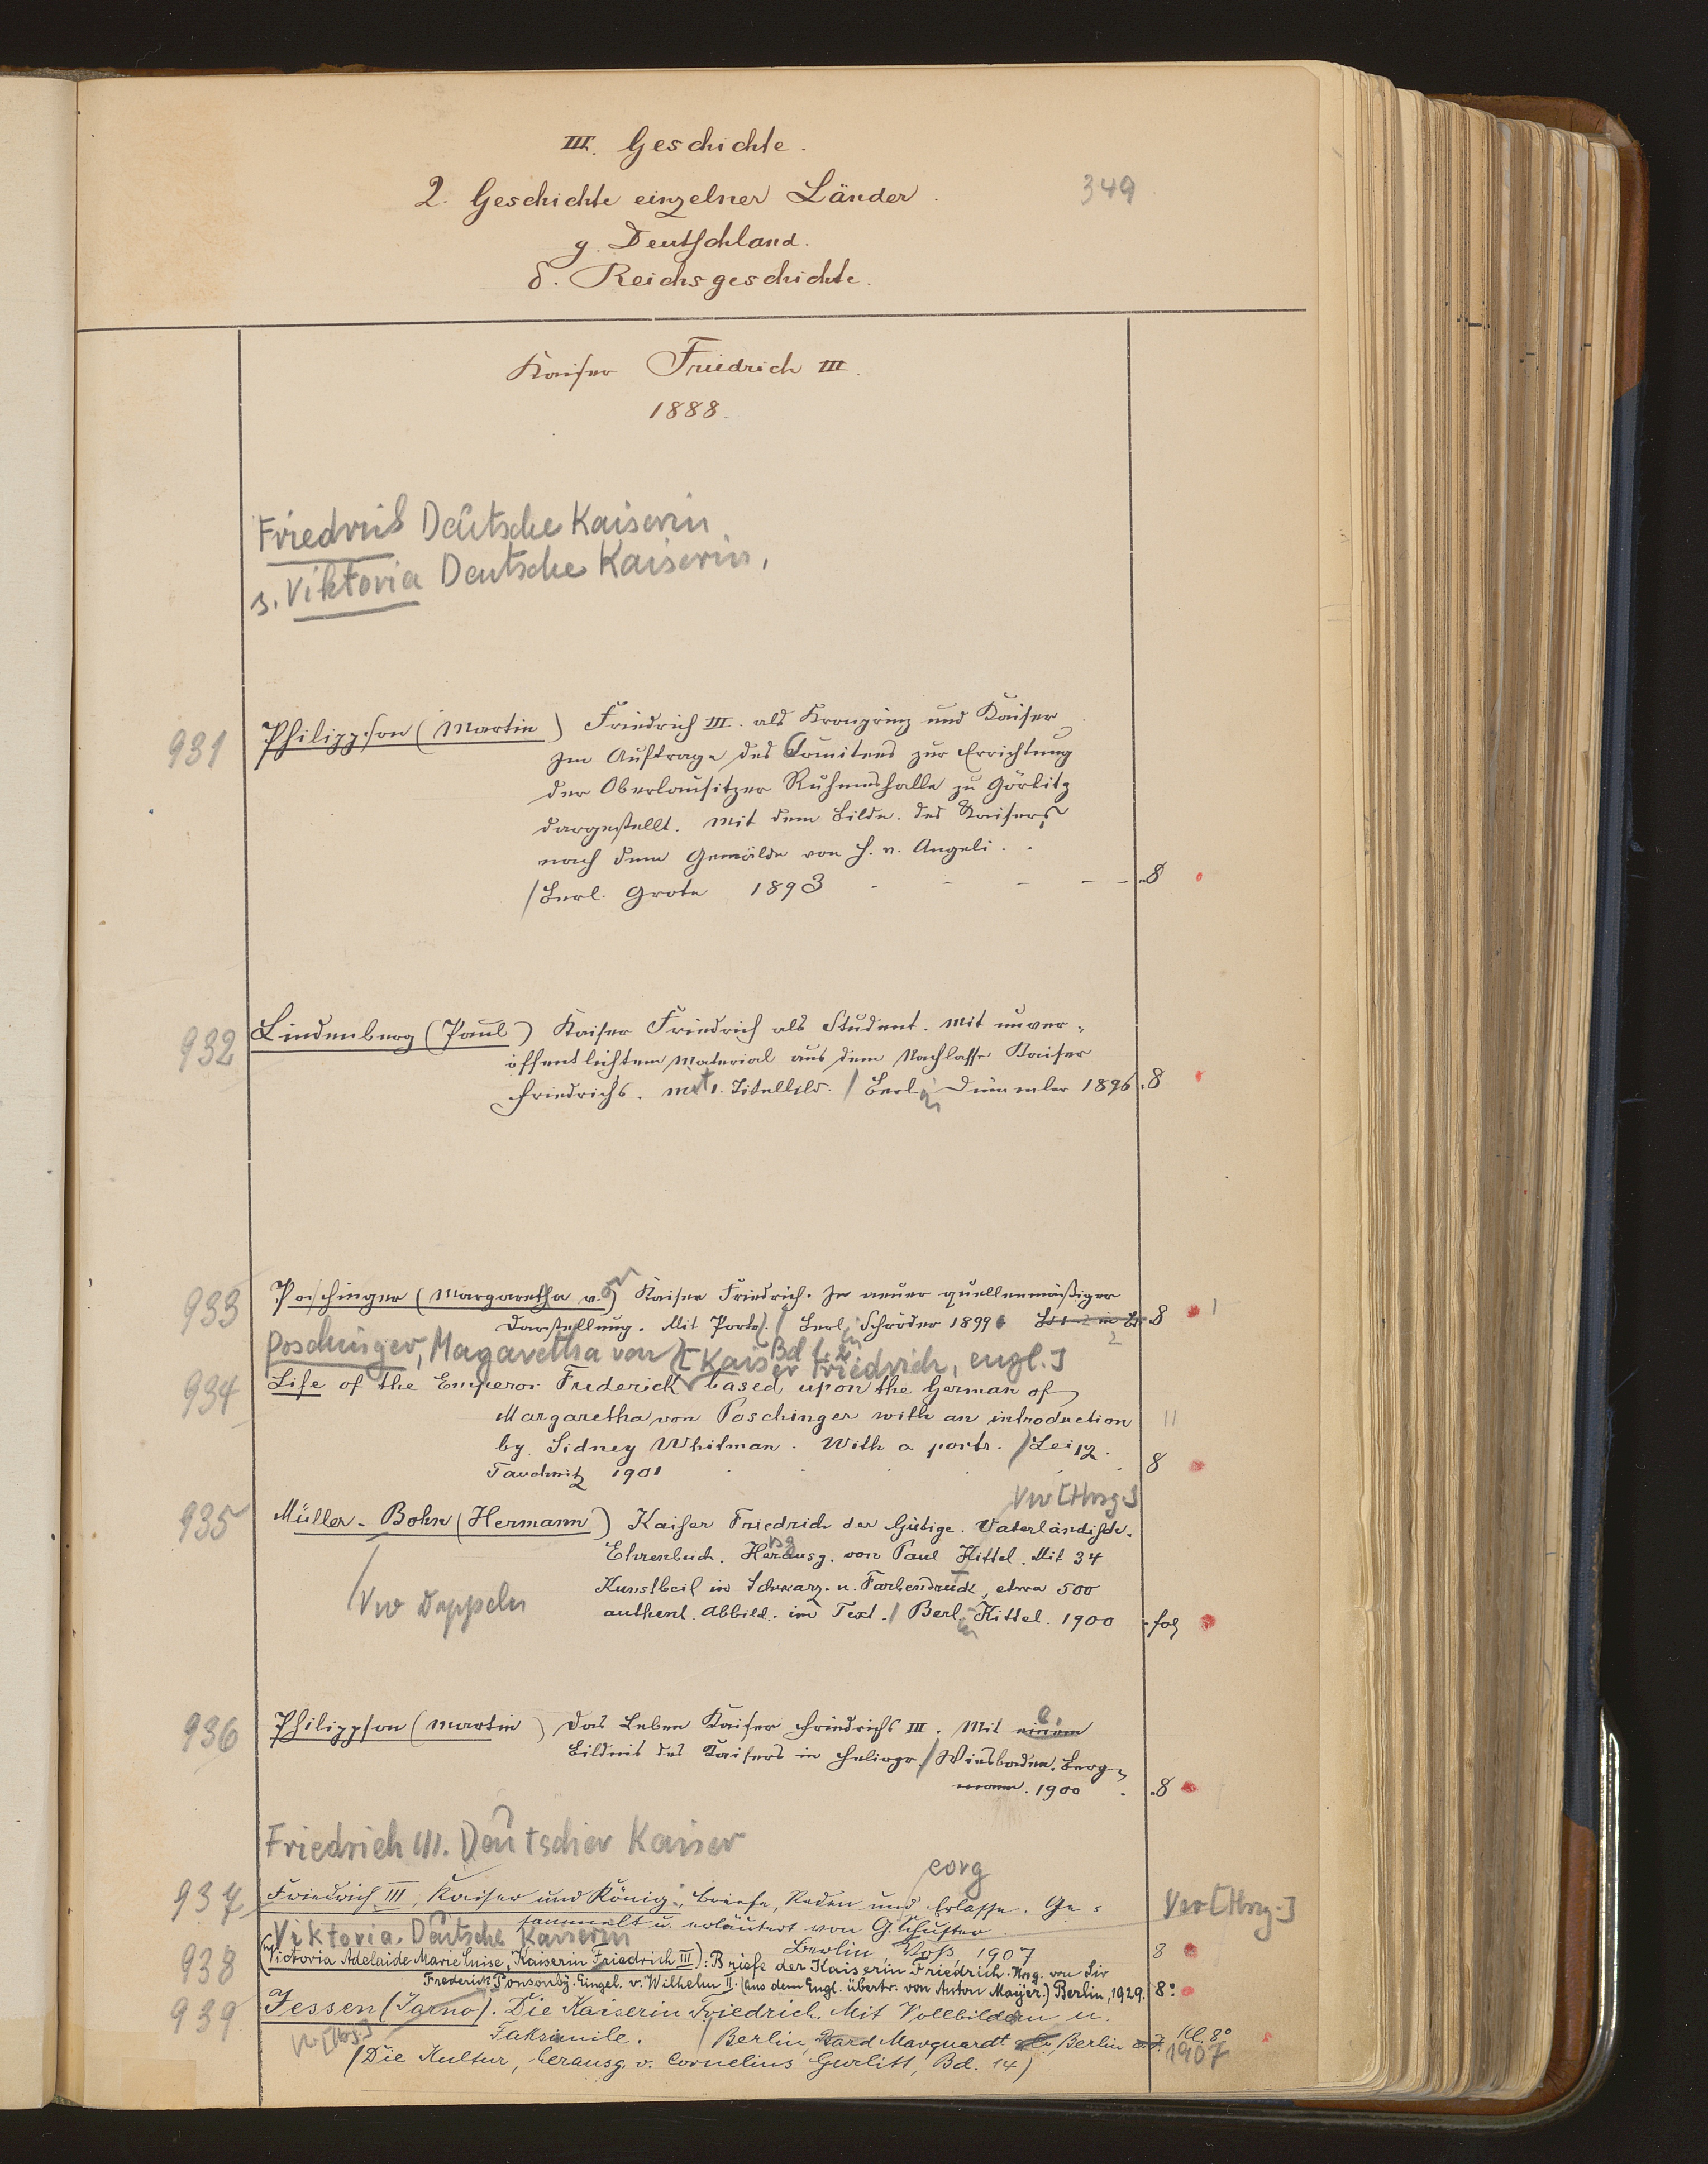 III. Geschichte.
2. Geschichte einzelner Länder.
349
g. Deutschland.
δ. Reichsgeschichte.
Kaiser Friedrich III.
1888.
Friedrich Deutsche Kaiserin
s. Viktoria Deutsche Kaiserin,
931 Philippson (Martin) Friedrich III. als Kronprinz und Kaiser
Im Auftrage des Comitees zur Errichtung
der Oberlausitzer Ruhmeshalle zu Görlitz
dargestellt. Mit dem Bilde des Kaisers
nach dem Gemälde von H. v. Angeli.
/Berl. Grote 1893 - - - - - 8
932 Lindenberg (Paul) Kaiser Friedrich als Student. Mit unver-
öffentlichtem Material aus dem Nachlasse Kaiser
Friedrichs. Mit 1. Titelbild. / Berlin Dümmler 1896. 8
933 Poschinger (Margaretha v.) Kaiser Friedrich. In neuer quellenmäßiger
Darstellung. Mit Portr. / Berlin Schröder 1899 8 1
Bd 1. 2. 2
Poschinger, Magaretha von [Kaiser Friedrich, engl.]
934 Life of the Emperor Frederick based upon the German of
Margaretha von Poschinger with an introduction 11
by Sidney Whitman. With a portr. / Leipz.
Tauchnitz 1901 8
Vw [Hrsg.]
935 Müller-Bohn (Hermann) Kaiser Friedrich der Gütige. Vaterländisch.
Ehrenbuch. Herausg. von Paul Kittel. Mit 34
Kunstbeil in Schwarz- u. Farbendruck, etwa 500
Vw Doppeln authent. Abbild. im Text. / Berlin Kittel. 1900 - fol
936 Philippson (Martin) Das Leben Kaiser Friedrichs III. Mit einem
Bildnis des Kaisers in Heliogr. / Wiesbaden. Berg-
mann. 1900 . 8
Friedrich III. Deutscher Kaiser
eorg
937 Friedrich III, Kaiser und König: Briefe, Reden und Erlasse. Ge- Vw [Hrsg.]
sammelt u. erläutert von G. Schuster.
Viktoria, Deutsche Kaiserin Berlin, Voß, 1907 8
938 (Victoria Adelaide Marie Luise, Kaiserin Friedrich III): Briefe der Kaiserin Friedrich. Hrsg. von Sir
Frederick Ponsonby. Eingel. v. Wilhelm II. (Aus dem Engl. übertr. von Anton Mayer.) Berlin, 1929. 8°
939 Jessen (Jarno). Die Kaiserin Friedrich. Mit Vollbildern u.
Vw [Hrsg.] Faksimile. / Berlin, Bard Marquardt & Co, Berlin o.J. Kl. 8°
1907
(Die Kultur, herausg. v. Cornelius Gurlitt, Bd. 14)